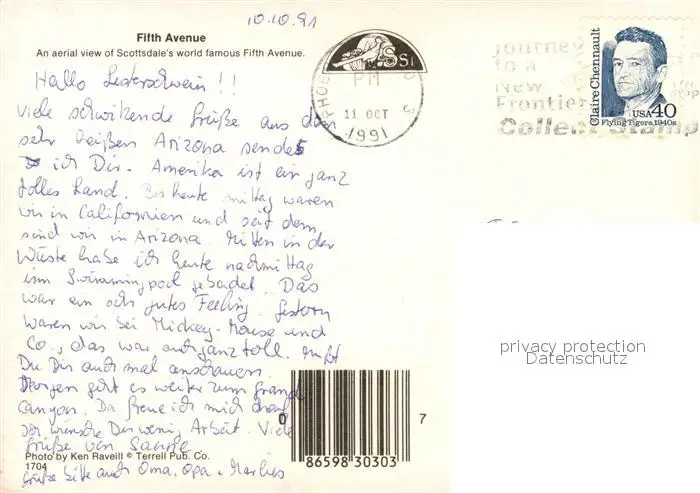 10.10.91
Fifth Avenue
An aerial view of Scottsdale's world famous Fifth Avenue.
Hallo !!
viele schwitzende Grüße aus dem
sehr heißen Arizona sende
ich Dir. Amerika ist ein ganz
tolles Land. Bis heute mittag waren
wir in Californien und seit dem
sind wir in Arizona. Mitten in der
Wüste habe ich heute nachmittag
im Swimmingpool gebadet. Das
war ein sehr gutes Feeling. Gestern
waren wir bei Mickey-Mouse und
Co., das war auch ganz toll. Mußt
Du Dir auch mal anschauen.
Morgen geht es weiter zum Grand
Canyon. Da freue ich mich drauf
wünsche Dir wenig Arbeit. Viele
Grüße von
Photo by Ken Raveill © Terrell Pub. Co.
1704
Grüße bitte auch Oma, Opa, Marlies
PM
11 OCT
1991
Journey
to a
New
Frontier
Collect Stamps
Claire Chennault
USA 40
Flying Tigers, 1940s
privacy protection
Datenschutz
0 86598 30303 7